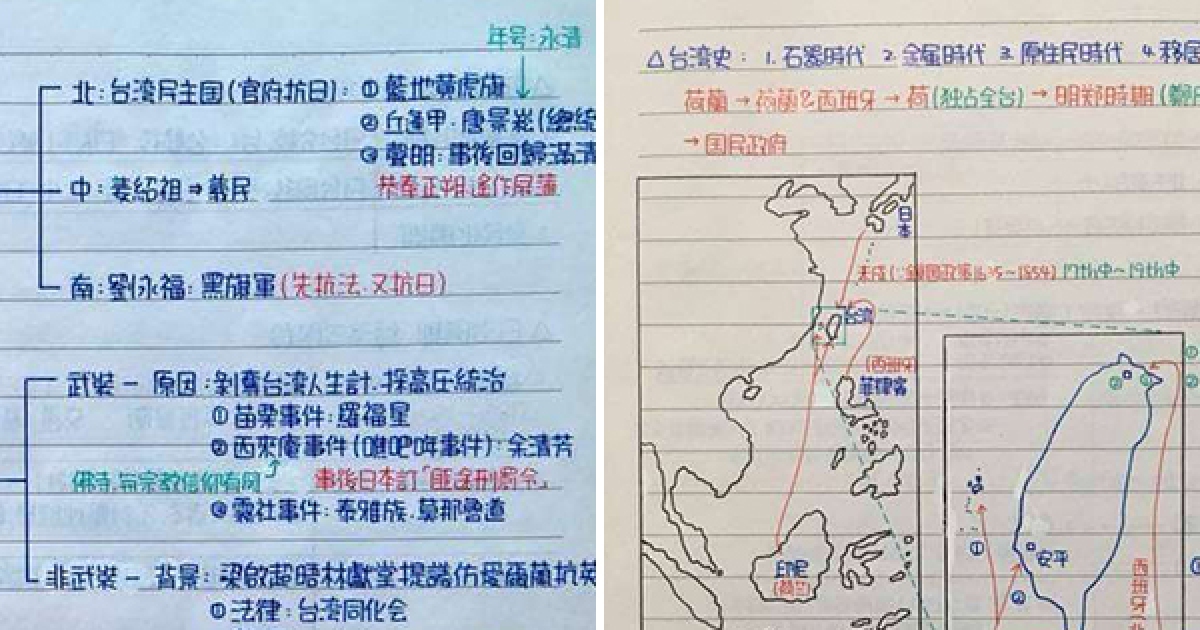 年号:永清
北:台湾民主国(官府抗日):①藍地黃虎旗
②丘逢甲.唐景崧(總統
③聲明:事後回歸滿清
恭奉正朔,遙作屏藩
中:姜紹祖⇒義民
南:劉永福:黑旗軍(先抗法.又抗日)
武裝－原因:剝奪台湾人生計.採高压統治
①苗栗事件:羅福星
②西來庵事件(噍吧哖事件):余清芳
事後日本訂「匪徒刑罰令」
③霧社事件:泰雅族.莫那魯道
非武裝－背景:梁啟超晤林獻堂提議仿愛爾蘭抗英
①法律:台湾同化会
△台湾史:1.石器時代 2.金属時代 3.原住民時代 4.移居
荷蘭→荷蘭&西班牙→荷(独占全台)→明郑時期(鄭
→国民政府
日本
未成(∵鎖国政策1635~1854)17th中~19th中
台湾
(西班牙)
菲律賓
印尼
(荷兰)
①
②
①
②
①
安平
②
西班牙(北